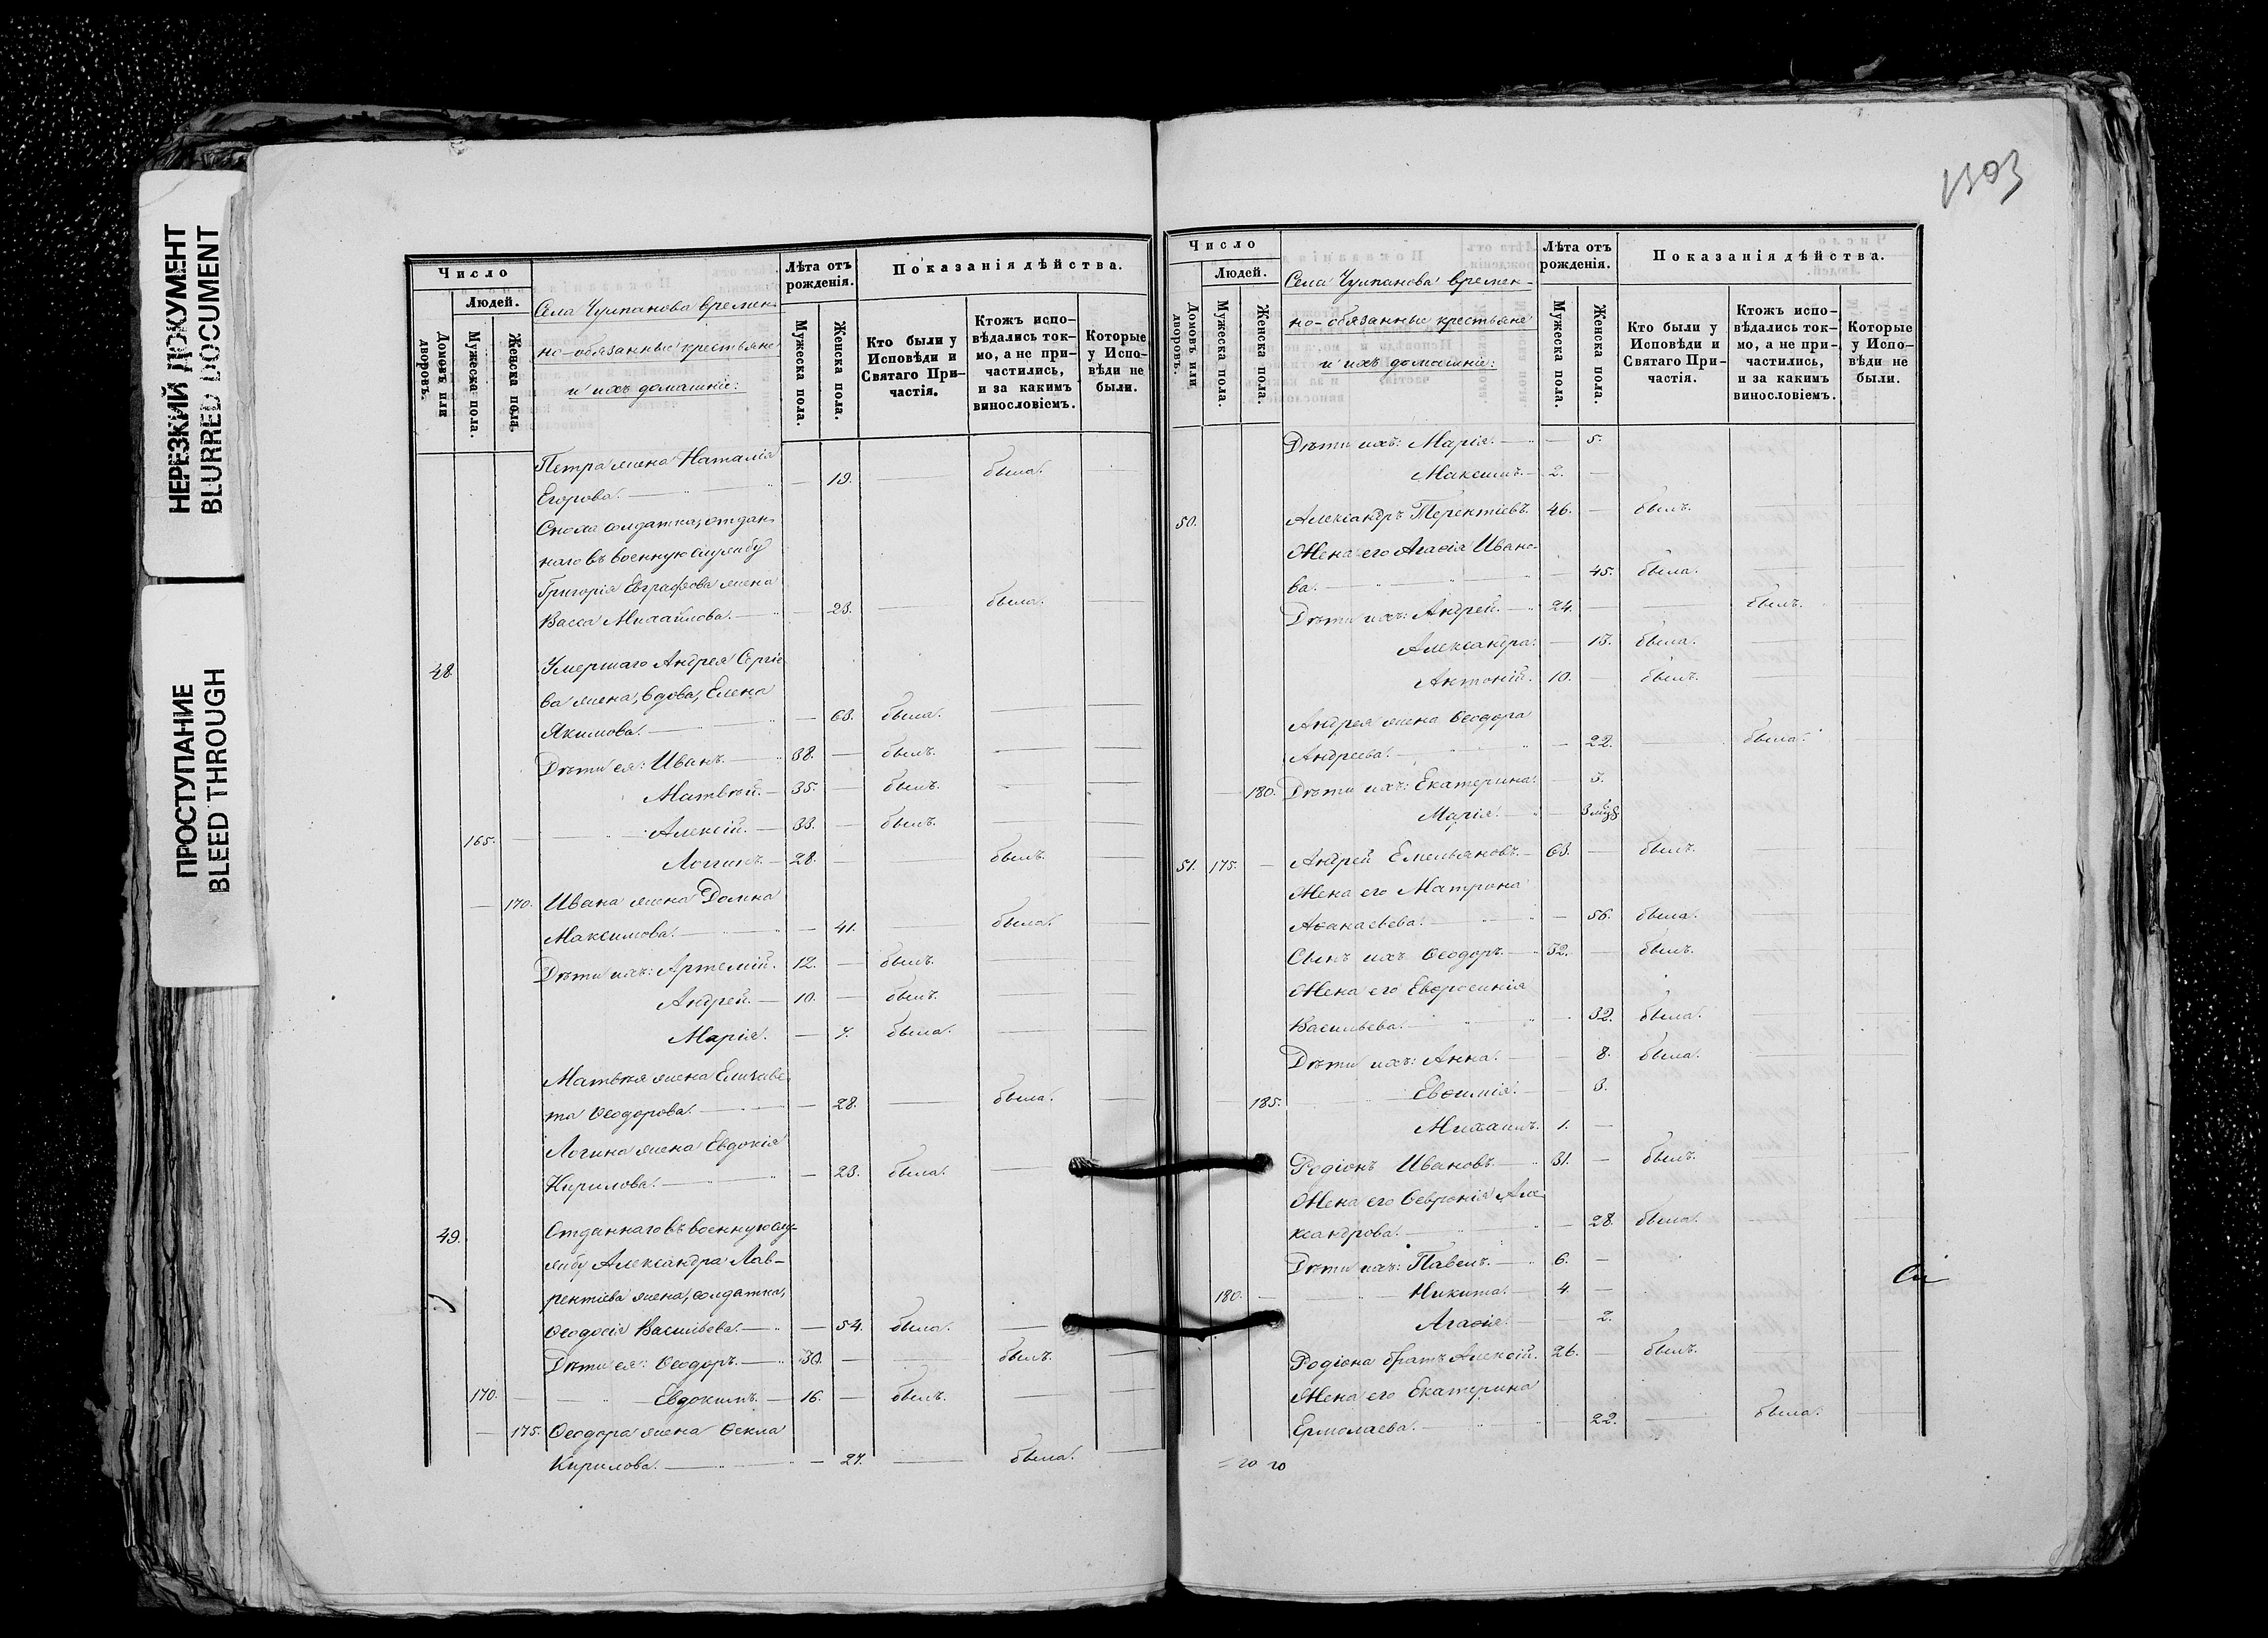 НЕРЕЗКИЙ ДОКУМЕНТ
BLURRED DOCUMENT
ПРОСТУПАНИЕ
BLEED THROUGH
Число
Людей.
Домовъ или дворовъ.
Мужеска пола.
Женска пола.
Села Чулпанова времен-
но-обязанные крестьяне
и ихъ домашніе:
Лѣта отъ рожденія.
Мужеска пола.
Женска пола.
Показанія дѣйства.
Кто были у Исповѣди и Святаго При-частія.
Ктожъ испо-вѣдались ток-мо, а не при-частились, и за какимъ винословіемъ.
Которые у Испо-вѣди не были.
Петра жена Наталія
Егорова. — 19. — была. —
Сноха солдатка, отдан-
наго въ военную службу
Григорія Евграфова жена
Васса Михайлова. — 23. — была. —
48. Умершаго Андрея Сергіе-
ва жена, вдова, Елена
Якимова. — 63. была. — —
Дѣти ея: Иванъ. — 38. — былъ. — —
Матвѣй. — 35. — былъ. — —
165. — Алексій. — 33. — былъ. — —
Логинъ. — 28. — — былъ. —
— 170. Ивана жена Домна
Максимова. — 41. — была. —
Дѣти ихъ: Артемій. 12. — былъ. — —
Андрей. — 10. — былъ. — —
Марія. — 7. была. — —
Матвѣя жена Елизаве-
та Ѳеодорова. — 28. — была. —
Логина жена Евдокія
Кирилова. — 23. была. —
49. Отданнаго въ военную слу-
жбу Александра Лав-
рентіева жена, солдатка,
Ѳеодосія Васильева. — 54. была. —
Дѣти ея: Ѳеодоръ. — 30. — — былъ. —
170. — Евдокимъ. — 16. — былъ. — —
— 175. Ѳеодора жена Ѳекла
Кирилова. — 27. — была. —
1303
Число
Людей.
Домовъ или дворовъ.
Мужеска пола.
Женска пола.
Села Чулпанова времен-
но-обязанные крестьяне
и ихъ домашніе:
Лѣта отъ рожденія.
Мужеска пола.
Женска пола.
Показанія дѣйства.
Кто были у Исповѣди и Святаго При-частія.
Ктожъ испо-вѣдались ток-мо, а не при-частились, и за какимъ винословіемъ.
Которые у Испо-вѣди не были.
Дѣти ихъ: Марія. — 5.
Максимъ. — 2. —
50. Александръ Терентіевъ. 46. — былъ. — —
Жена его Агаѳія Ивано-
ва. — 45. была. — —
Дѣти ихъ: Андрей. — 24. — — былъ. —
Александра. — 13. была. — —
Антоній. 10. — былъ. — —
Андрея жена Ѳеодора
Андреева. — 22. — была. —
— 180. Дѣти ихъ: Екатерина. — 3.
Марія. — 3
51. 175. — Андрей Емельяновъ. — 63. — былъ. — —
Жена его Матрона
Аѳанасьева. — 56. была. — —
Сынъ ихъ Ѳеодоръ. — 32. — былъ. — —
Жена его Евфросинія
Васильева. — 32. была. — —
Дѣти ихъ: Анна. — 8. была. — —
— 185. Евѳимія. — 3.
Михаилъ. 1. —
Родіонъ Ивановъ. — 31. — былъ. — —
Жена его Ѳевронія Але-
ксандрова. — 28. была. — —
Дѣти ихъ: Павелъ. — 6. —
180. — Никита. — 4. —
Агаѳія. — 2.
Родіона братъ Алексій. 26. — былъ. — —
Жена его Екатерина
Ермолаева. — 22. — была. —